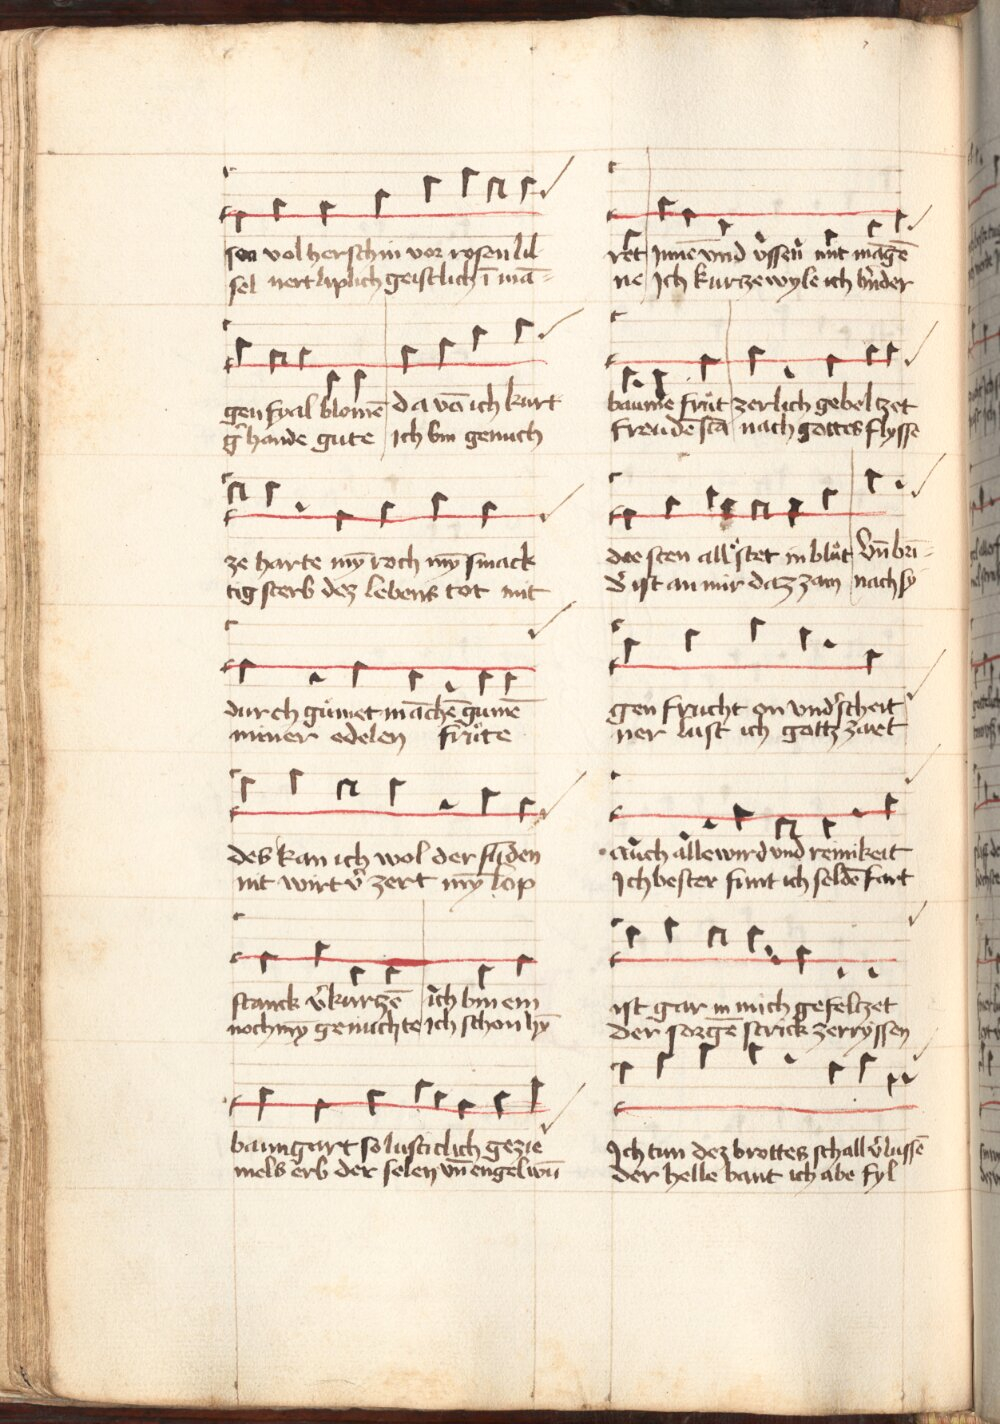 sen vol herschin vor rosen lil
sel nert liplich geistlich ī mā=
gen fyal blomē da vō ich kurt
gr̄ hande gute ich bin genuch
ze harte mȳ roch mȳ smack
tig sterb dez lebens tot mit
durch gúmet māchē gumē
miner edelen frúte
des kan ich wol der súden
nit wirt v̄ zert mȳ lop
stanck v̄kurtzē ich bin ein
noch mȳ genuchte ich schon hȳ
baumgart so lusticlich gezie
mels erb der selen vn̄ engel wū
ret Jnnē vnd vssen mit māgē
ne Jch kurzewyle ich kinder
baume frút zerlich gebeltzet
freudē stā nach gottes flysse
die sten all stet in blút vn̄ bri=
v̄ ist an mir daz zam nach sy
gen frucht on vnd scheit
ner lust ich gottz zart
auch alle wird vnd reinikeit
Jch bester funt ich seldē fart
ist gar in mich gefeltzet
der sorgē strick zerryssen
Jch tun dez brottes schall v̄lussē
der helle bant ich abe fyl